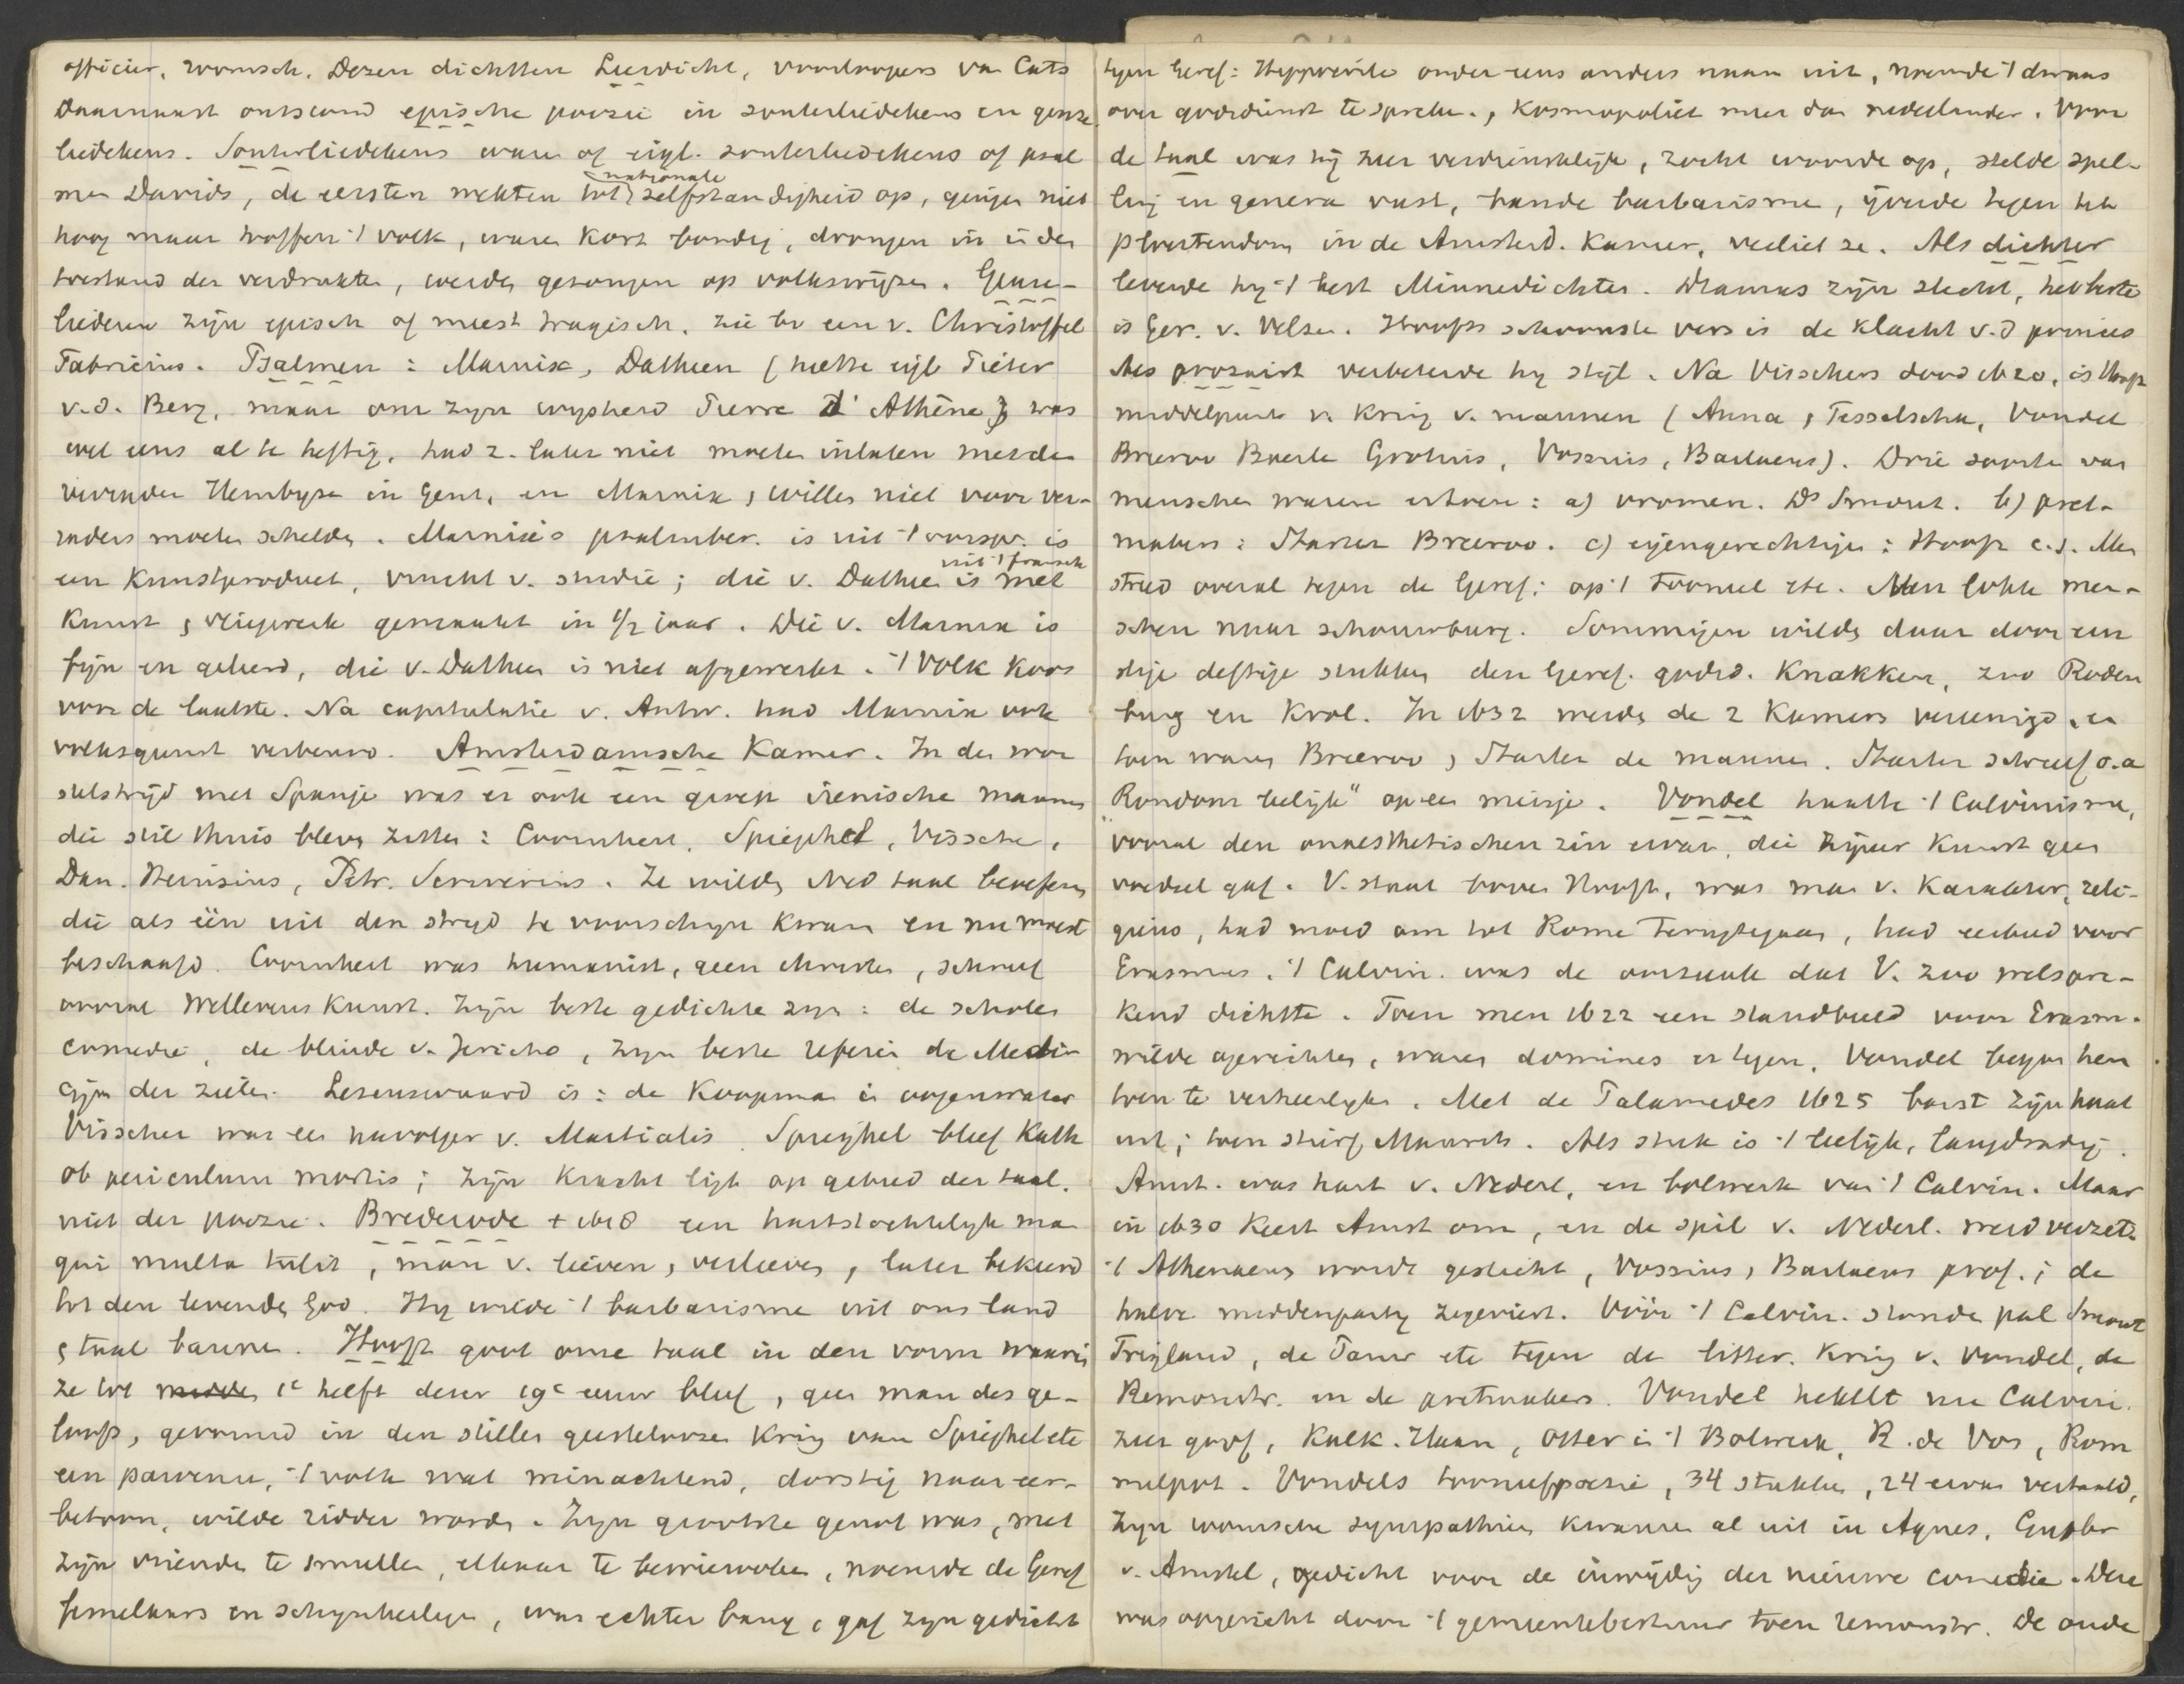 officier, roomsch. Dezen dichtten Leerdicht, voorloopers van Cats
Daarnaast ontstond epische poezie in souterliedekens en geuze
liedekens. Souterliedekens waren of eigl. souterliedekens of psal
men Davids, de eersten wekten tot nationale zelfstandigheid op, gingen niet
hoog maar troffen 't volk, waren kort bondig, drongen in in den
toestand der verdrukten, werden gezongen op volkswijzen. Geuze-
liederen zijn episch of meest tragisch. Zie bv een v. Christoffel
Fabricius. Psalmen: Marnix, Datheen (heette eigl Pieter
v.d. Berg, maar om zijn wijsheid Pierre d' Athène) was
wel eens al te heftig, had z. later niet moeten inlaten met den
verrader Hembyze in Gent, en Marnix, Willem niet voor ver-
raders moeten schelden. Marnix's psalmber. is uit 't oorspr. is
een Kunstproduct, vrucht v. studie; die v. Datheen is uit 't fransch met
Kunst, vliegwerk gemaakt in 1/2 jaar. Die v. Marnix is
fijn en geleerd, die v. Datheen is niet afgewerkt. 't Volk koos
voor de laatste. Na capitulatie v. Antw. had Marnix ook
volksgunst verbeurd. Amsterdamsche Kamer. In den wor
stelstrijd met Spanje was er ook een groep irenische mannen
die stil thuis bleven zitten: Coornhert, Spieghel, Visscher,
Dan. Heinsius, Petr. Scriverius. Ze wilden Ned taal beoefenen
die als één uit den strijd te voorschijn kwam en nu moest
beschaafd. Coornhert was humanist, geen christen, schreef
vooral Wellevenskunst. Zijn beste gedichten zijn: de scholen
comedie, de blinde v. Jericho, zijn beste referein de Medi
cijn der zielen. Lezenswaard is: de Koopman in oogenwater
Visscher was een navolger v. Martialis. Spieghel bleef Kath
ob periculum mortis; zijn kracht ligt op gebied der taal.
niet der poezie. Brederode + 1618 een hartstochtelijk man
qui multa tulit, man v. lieven, verlieven, later bekeerd
tot den levenden God. Hij wilde 't barbarisme uit ons land
, taal bannen. Hooft goot onze taal in den vorm waarin
ze tot 1e helft dezer 19e eeuw bleef, geen man des ge-
loofs, gevormd in den stillen geestelooze Kring van Spieghel etc
een parvenu, 't volk wat minachtend, dorstig naar eer-
betoon, wilde ridder worden. Zijn grootste genot was, met
zijn vrienden te smullen, elkaar te bewierooken, noemde de Geref
femelaars en schijnheiligen, was echter bang, gaf zijn gedicht
tegen Geref: Hypocrite onder eens anders naam uit, noemde 't dwaas
over godsdienst te spreken., Kosmopoliet meer dan nederlander. Voor
de taal was hij zeer verdienstelijk, zocht woorden op, stelde spel-
ling en genera vast, bande barbarisme, ijverde tegen het
plvertendom in de Amsterd. Kamer, verliet ze. Als dichter
leverde hij 't best Minnedichten. Dramas zijn slecht, het beste
is Ger. v. Velsen. Hoofts schoonste vers is de klacht v.d prinses
Als prozaist verbeterde hij stijl. Na Visschers dood 1620, is Hooft
middelpunt v. Kring v. mannen (Anna, Tesselscha, Vondel
Breeroo Baerle Grotius, Vossius, Barlaeus). Drie soorten van
menschen waren ertoen: a) vromen. Ds Smout. b) pret-
makers: Starter Breeroo. c) eigengerechtigen: Hooft c.s. Men
streed overal tegen de Geref: op 't tooneel etc. Men lokte men-
schen naar schouwburg. Sommigen wilden daar door een
stije deftige stukken den Geref. godsd. Knakken, zoo Roden
burg en Krol. In 1632 werden de 2 Kamers vereenigd, en
toen waren Breeroo, Starter de mannen. Starter schreef o.a
"Rondom leelijk" op een meisje. Vondel haatte 't Calvinisme,
vooral den onaesthetischen zin ervan, die zijner kunst geen
voedsel gaf. V. staat boven Hooft, was man v. Karakter, reli-
gieus, had moed om tot Rome terugtegaan, had eerbied voor
Erasmus. 't Calvin. was de oorzaak dat V. zoo welspre-
kend dichtte. Toen men 1622 een standbeeld voor Erasm.
wilde oprichten, waren dominés er tegen. Vondel begon hen
toen te verheerlijken. Met de Palamedes 1625 barst zijn haat
uit; toen stierf Maurits. Als stuk is 't leelijk, langdradig.
Amst. was hart v. Nederl. en bolwerk van 't Calvin. Maar
in 1630 Keert Amst om, en de spil v. Nederl. werd verzet.
't Athenaeum wordt gesticht, Vossius, Barlaeus prof.; de
halve middenpartij zegeviert. Vóór 't Calvin. stonden pal Smout
Trigland, de Tamr etc tegen de litter. Kring v. Vondel, de
Remonstr. en de pretmakers. Vondel hekelt nu Calvin.
zeer grof, Kalk. Haan, Otter in 't Bolwerk, R. de Vos, Rom
melpot. Vondels tooneelpoezie, 34 stukken, 24 ervan vertaald,
Zijn roomsche sympathieen kwamen al uit in Agnes, Gysbr
v. Amstel, gedicht voor de inwijding der nieuwe comedie. Deze
was opgericht door 't gemeentebestuur toen remonstr. De oude